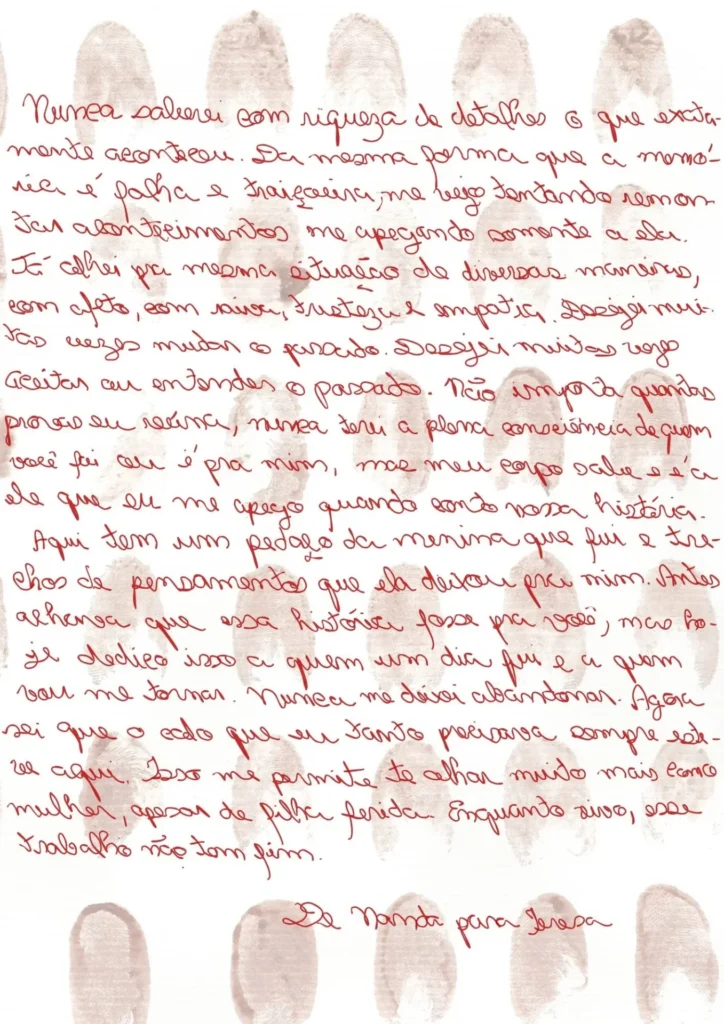 Nunca saberei com riqueza de detalhes o que exata-
mente aconteceu. Da mesma forma que a memó-
ria é falha e traiçoeira, me vejo tentando remon-
tar acontecimentos me apegando somente a ela.
Já olhei pra mesma situação de diversas maneiras,
com afeto, com raiva, tristeza e empatia. Desejei mui-
tas vezes mudar o passado. Desejei muitas vezes
aceitar ou entender o passado. Não importa quantas
provas eu reúna, nunca terei a plena consciência de quem
você foi ou é pra mim, mas meu corpo sabe e é a
ele que eu me apego quando conto nossa história.
Aqui tem um pedaço da menina que fui e tre-
chos de pensamentos que ela deixou pra mim. Antes
achava que essa história fosse pra você, mas ho-
je dedico isso a quem um dia fui e a quem
vou me tornar. Nunca me deixei abandonar. Agora
sei que o colo que eu tanto precisava sempre este-
ve aqui. Isso me permite te olhar muito mais como
mulher, apesar de filha ferida. Enquanto vivo, esse
trabalho não tem fim.
De Nanda para Teresa